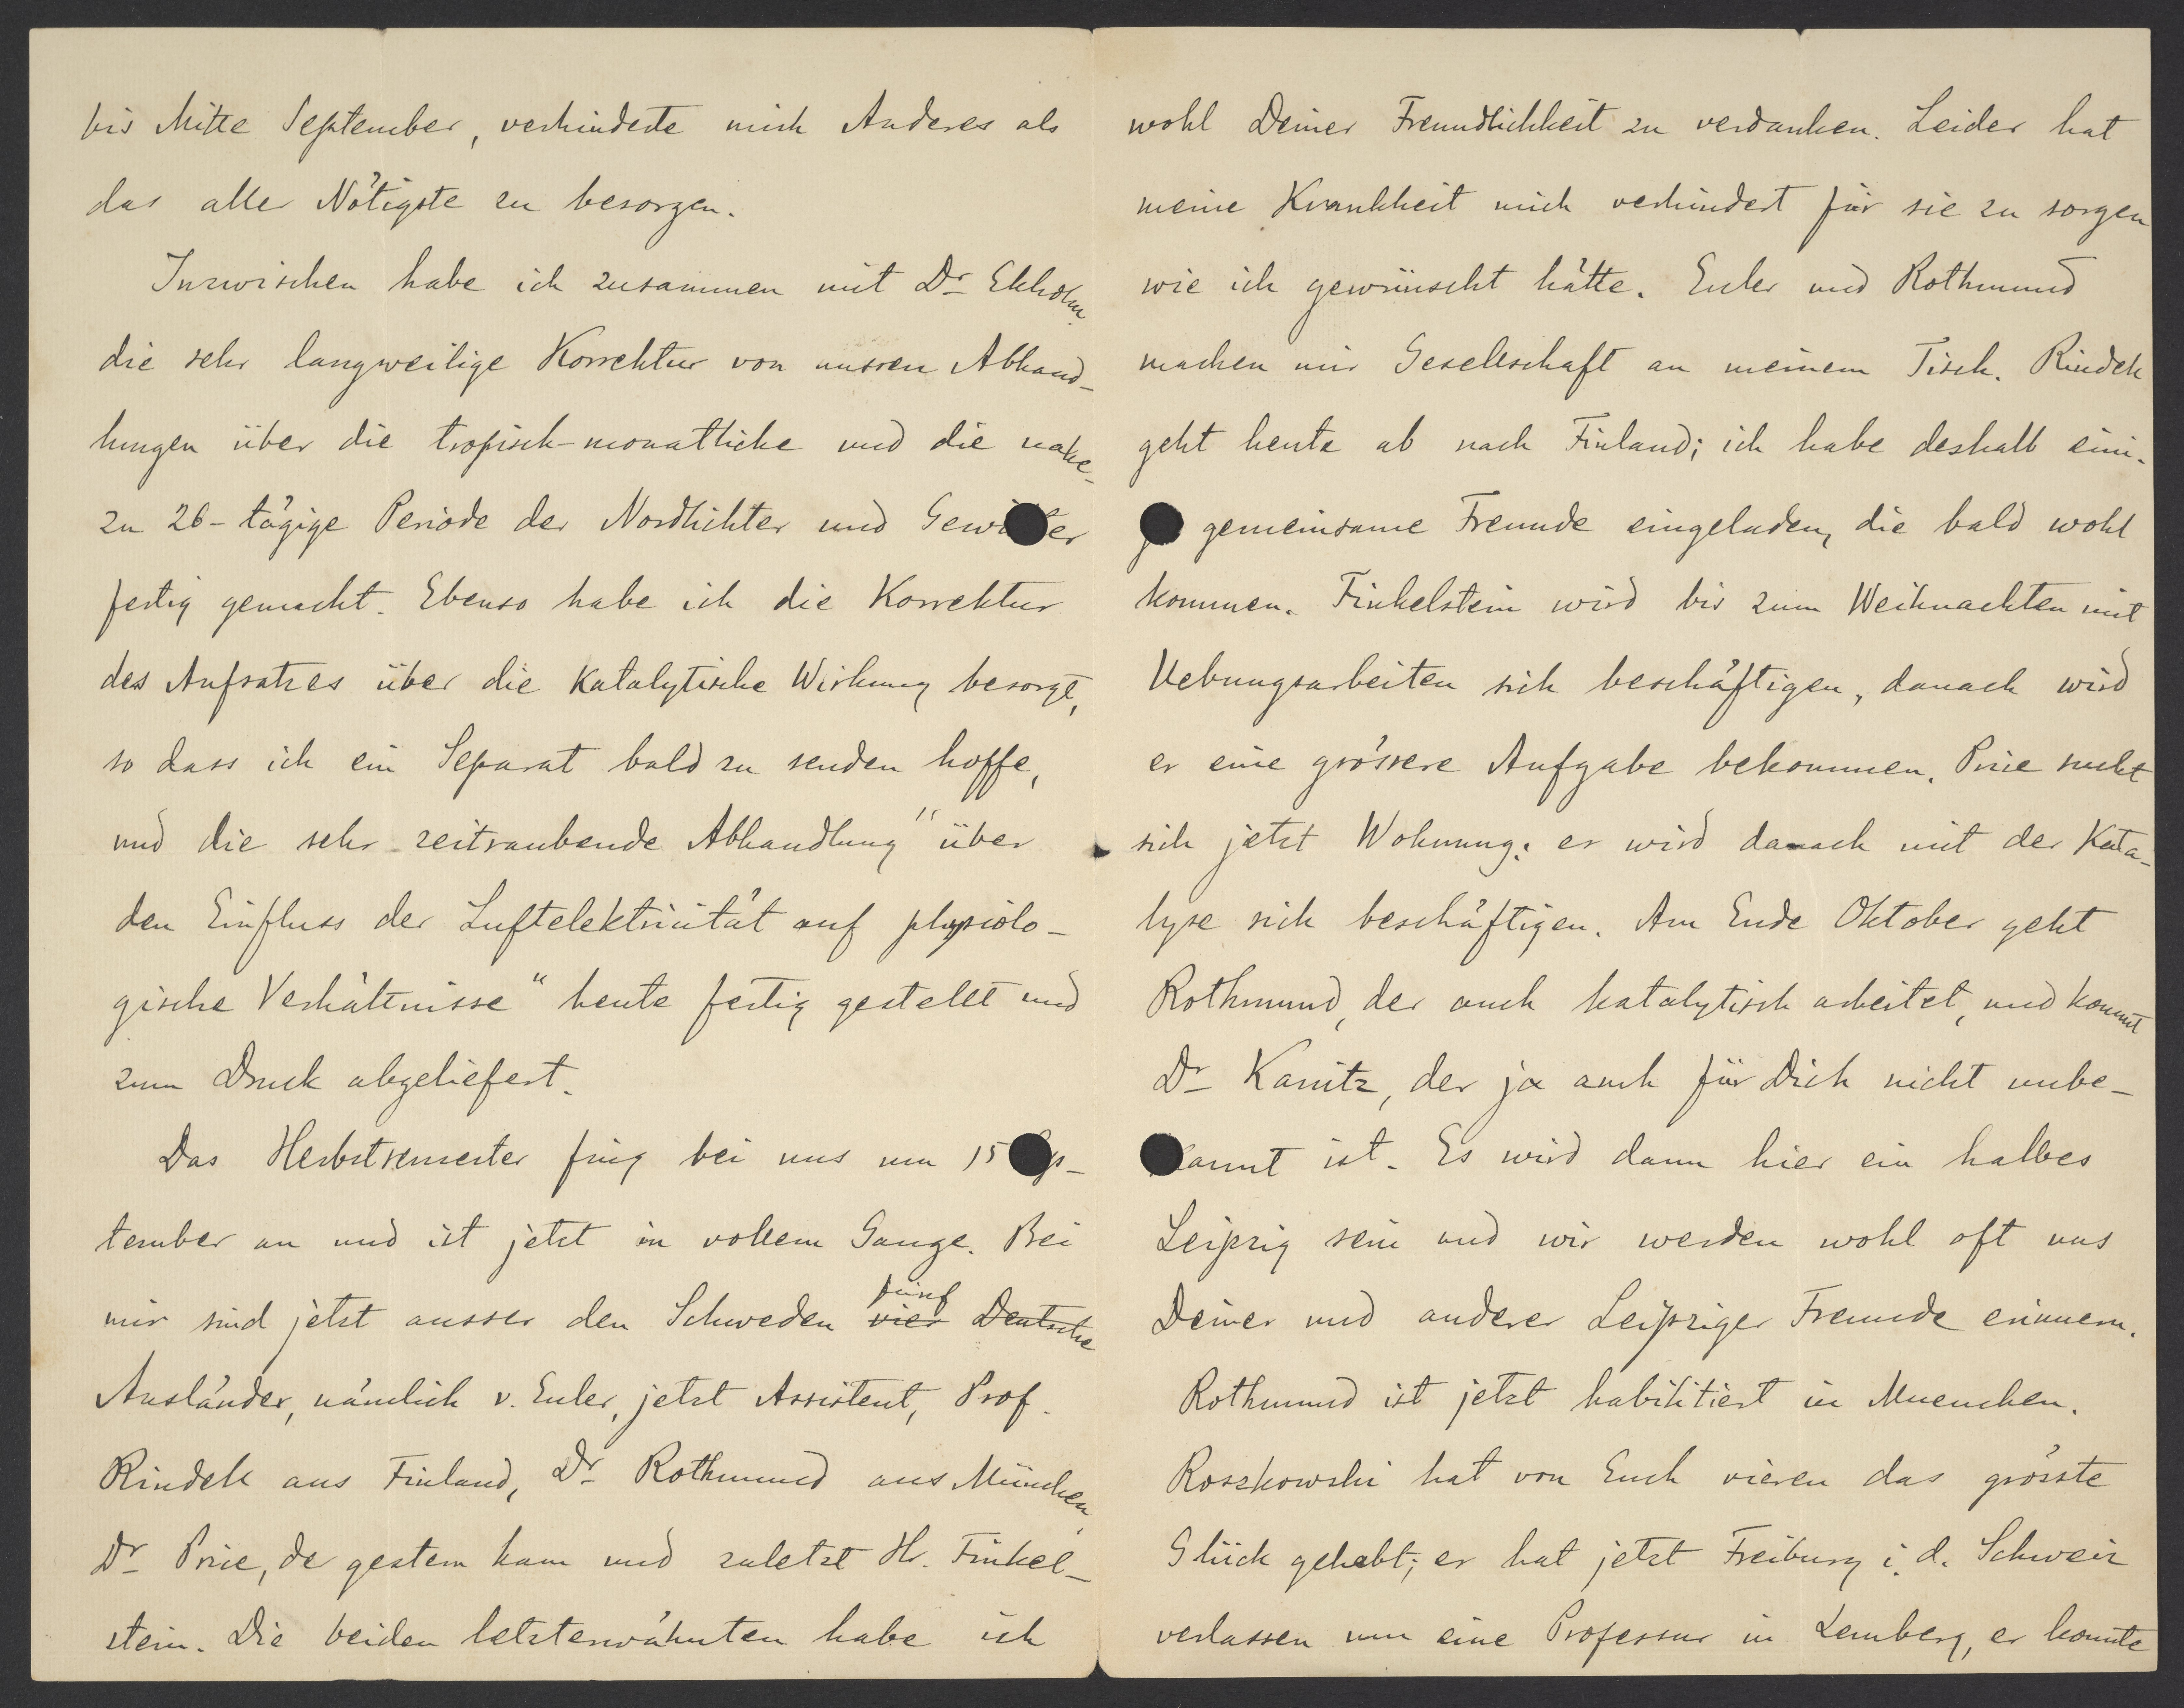 bis Mitte September, verhinderte mich Anderes als
das aller Nötigste zu besorgen.
Inzwischen habe ich zusammen mit Dr Ekholm
die sehr langweilige Korrektur von unsren Abhand-
lungen über die tropisch-monatliche und die nahe-
zu 26-tägige Periode der Nordlichter und Gewitter
fertig gemacht. Ebenso habe ich die Korrektur
des Aufsatzes über die Katalytische Wirkung besorgt,
so dass ich ein Separat bald zu senden hoffe,
und die sehr zeitraubende Abhandlung "über
den Einfluss der Luftelektricität auf physiolo-
gische Verhältnisse" heute fertig gestellt und
zum Druck abgeliefert.
Das Herbstsemester fing bei uns um 15 Sep-
tember an und ist jetzt in vollem Gange. Bei
mir sind jetzt ausser den Schweden vier fünf Deutsche
Ausländer, nämlich v. Euler, jetzt Assistent, Prof.
Rindell aus Finland, Dr Rothmund aus München,
Dr Price, de gestern kam und zuletzt Hr. Finkel-
stein. Die beiden letzterwähnten habe ich
wohl Deiner Freundlichkeit zu verdanken. Leider hat
meine Krankheit mich verhindert für sie zu sorgen
wie ich gewünscht hätte. Euler und Rothmund
machen mir Gesellschaft an meinem Tisch. Rindell
geht heute ab nach Finland; ich habe deshalb eini-
ge gemeinsame Freunde eingeladen, die bald wohl
kommen. Finkelstein wird bis zum Weihnachten mit
Uebungsarbeiten sich beschäftigen, danach wird
er eine grössere Aufgabe bekommen. Price sucht
sich jetzt Wohnung; er wird danach mit der Kata-
lyse sich beschäftigen. Am Ende Oktober geht
Rothmund, der auch katalytisch arbeitet, und kommt
Dr Kanitz, der ja auch für Dich nicht unbe-
kannt ist. Es wird dann hier ein halbes
Leipzig sein und wir werden wohl oft uns
Deiner und anderer Leipziger Freunde erinnern.
Rothmund ist jetzt habilitiert in Muenchen.
Roszkowski hat von Euch vieren das grösste
Glück gehabt; er hat jetzt Freiburg i. d. Schweiz
verlassen um eine Professur in Lemberg, er konnte